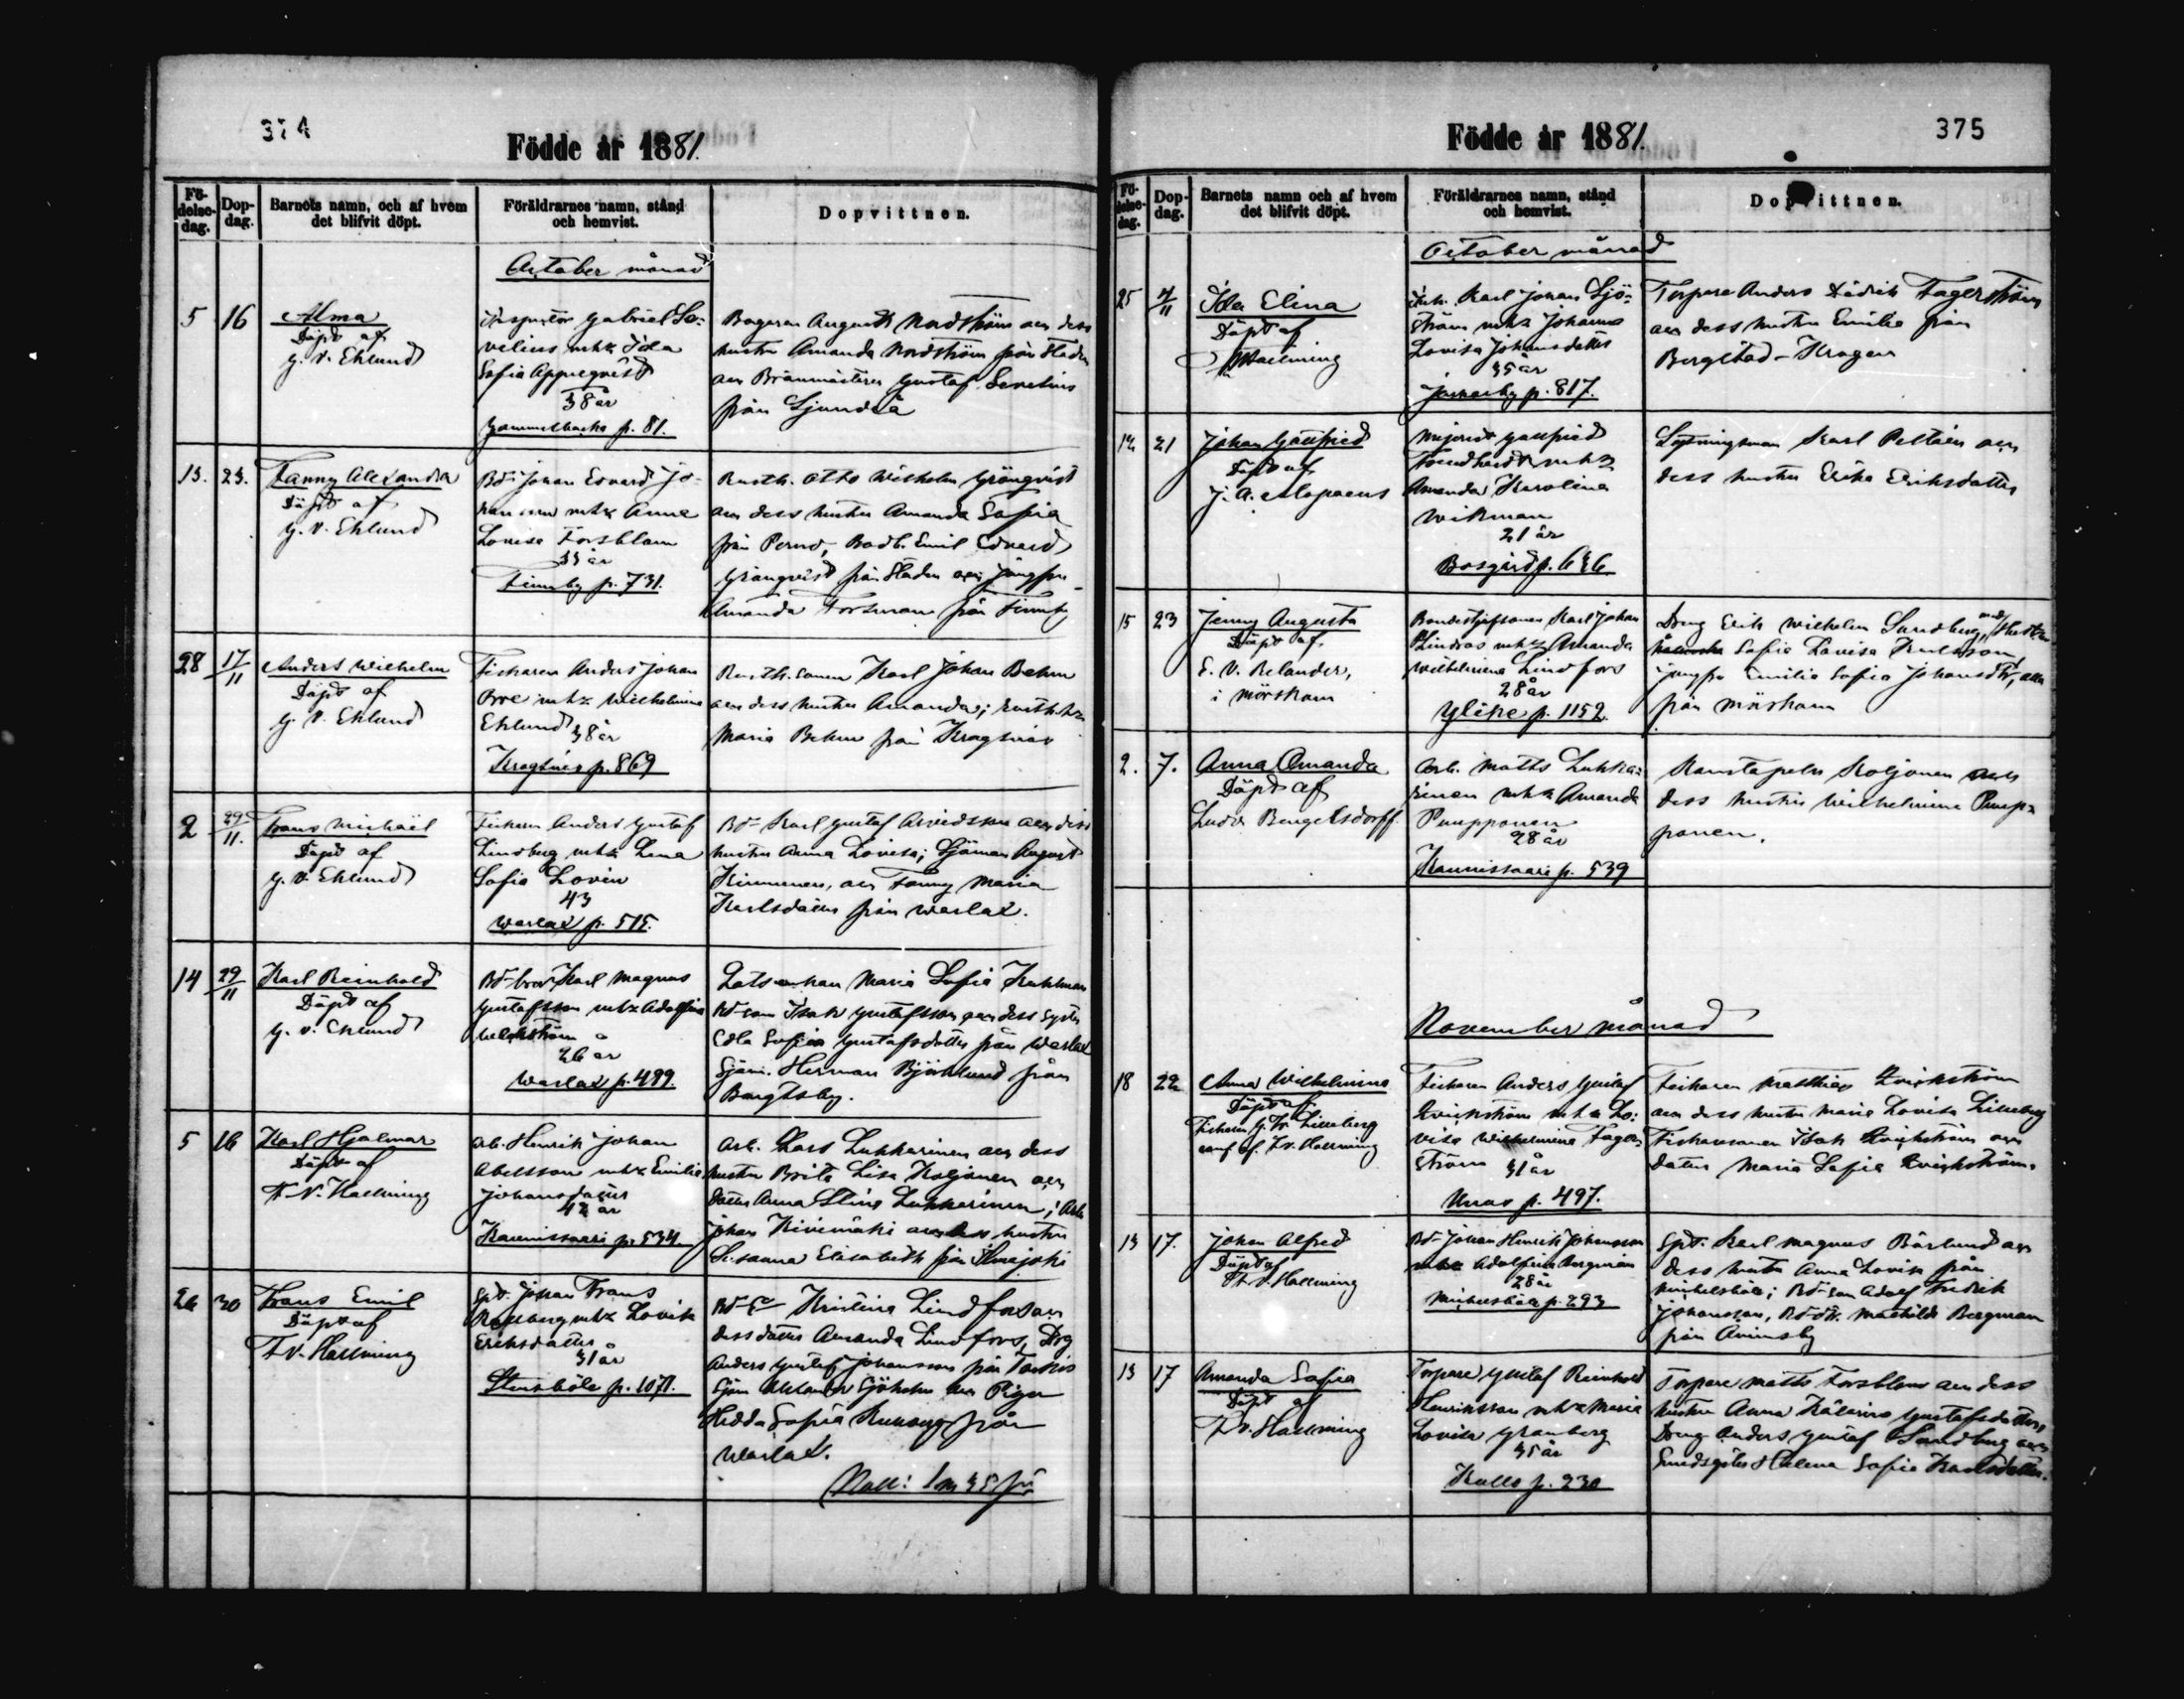 374
Födde år 1881.
Fö-
delse-
dag.
Dop-
dag.
Barnets namn, och af hvem
det blifvit döpt.
Föräldrarnes namn, stånd
och hemvist.
Dopvittnen.
October månad
5
16
Alma
Döpt af
G. V. Eklund
Inspector Gabriel Se-
velius Ida
Sofia Appelqvist
38 år
Gammelbacka p. 81.
Bagaren August Nordström och dess
hustru Amanda Nordström från Staden
och Brännmästaren Gustaf Sevelius
från Sjundeå
13.
23.
Fanny Alexandra
Döpt af
G. V. Eklund
Bd. Johan Edvard Jo-
hansson Anna
Lovisa Forsblom
33 år
Finnby p. 731.
Rusth. Otto Wilhelm Grönqvist
och dess hustru Amanda Sofia
från Perno, Emil Edvard
Grönqvist från Staden och Jungfru
Amanda Forsman från Finnby
28
17/11
Anders Wilhelm
Döpt af
G. V. Eklund
Fiskaren Anders Johan
Orre Wilhelmina
Eklund 38 år
Kragsnäs p. 869
Rusth. sonen Karl Johan Behm
och dess hustru Amanda;
Maria Behm från Kragsnäs
2
29/11.
Frans Michaël
Döpt af
G. V. Eklund
Fiskaren Anders Gustaf
Lindberg Lena
Sofia Lovén
43
Warlax p. 515.
Bd. Karl Gustaf Arvidsson och dess
hustru Anna Lovisa; Sjöman August
Kinnunen, och Fanny Maria
Karlsdotter från Warlax.
14
29/11
Karl Reinhold
Döpt af
G. V. Eklund
Karl Magnus
Gustafsson Adolfina
26 år
Warlax p. 499.
Maria Sofia
Isak Gustafsson och dess syster
Edla Sofia Gustafsdotter från Warlax
Sjöm. Herman Björklund från
Bengtsby.
5
16
Karl Hjalmar
Döpt af
F. V. Hallming
Arb. Henrik Johan
Abelsson Emilia
Johansdotter
42 år
Kaunissaari p. 534.
Arb. Lars Lukkarinen och dess
hustru Brita Lisa Koljonen och
dotter Anna Stina Lukkarinen; Arb.
Johan Kivimäki och dess hustru
Susanna Elisabeth från Ilmajoki
26
30
Frans Emil
Döpt af
F. V. Hallming
Johan Frans
Lovisa
Eriksdotter
31 år
Stensböle p. 1071.
Kristina Lindfors och
dess dotter Amanda Lindfors, Drg
Anders Gustaf Johansson från
Sjöm. Sjöholm och Pigan
Hedda Sofia från
Warlax.
375
Födde år 1881.
Fö-
delse-
dag.
Dop-
dag.
Barnets namn och af hvem
det blifvit döpt.
Föräldrarnes namn, stånd
och hemvist.
Dopvittnen.
October månad
25
Ida Elina
Döpt af
Hallming
Karl Johan Sjö-
ström Johanna
Lovisa Johansdotter
35 år
p. 817.
Torpare Anders Fagerström
och dess hustru Emilia från
Bergstad-Kragen
12
21
Johan Gottfried
Döpt af
J. A. Alopaeus
Gottfried
Amanda Karolina
Wikman
21 år
Bosgård p. 636.
Karl och
dess hustru Erika Eriksdotter
15
23
Jenny Augusta
Döpt af
E. V. Relander,
i Mörskom
Karl Johan
Lindroos Amanda
Wilhelmina Lindfors
28 år
Ylike p. 1152.
Dreng Erik Wilhelm Sundberg,
Sofia Lovisa
jungfru Emilia Sofia Johansdtr, alla
från Mörskom
2.
7.
Anna Amanda
Döpt af
Ludv. Bengelsdorff
Arb. Matts Lukka-
rinen Amanda
Pumpponen
28 år
Kaunissaari p. 539
Konstapeln Koljonen och
dess hustru Wilhelmina Pump-
ponen.
November månad
18
22
Anna Wilhelmina
Döpt af
Fiskaren Lilleberg
Hallming
Fiskaren Anders Gustaf
Lo-
visa Wilhelmina Fager-
ström 31 år
p. 497.
Fiskaren Matthias
och dess hustru Maria Lovisa Lilleberg
Fiskaresonen Isak och
dotter Maria Sofia
13
17.
Johan Alfred
Döpt af
F. V. Hallming
Bd. Johan Henrik Johansson
Adolfina Bergman
28 år
Mickelsböle p. 293
Karl Magnus Bärlund och
dess hustru Anna Lovisa från
Mickelsböle; Bd-son Adolf Fredrik
Johansson, Mathilda Bergman
från
13
17
Amanda Sofia
Döpt af
F. V. Hallming
Torpare Gustaf Reinhold
Henriksson Maria
Lovisa Granberg
35 år
Kullo p. 230
Torpare Matts Forsblom och dess
hustru Anna Gustafsdotter,
Dreng Anders Gustaf Sandberg och
Helena Sofia Karlsdotter.